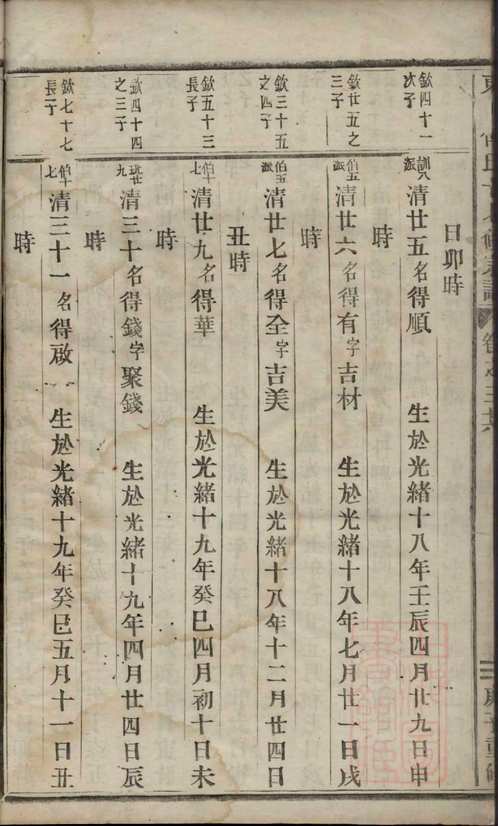 日卯時
欽四十一
次子
清廿五名得順 生於光緒十八年壬辰四月廿九日申
時
欽廿五之
三子
伯五
派
清廿六名得有字吉材 生於光緒十八年七月廿一日戌
時
欽三十五
之四子
伯五
派
清廿七名得全字吉美 生於光緒十八年十二月廿四日
丑時
欽五十三
長子
伯十
七
清廿九名得華 生於光緒十九年癸巳四月初十日未
時
欽四十四
之三子
清三十名得錢字聚錢 生於光緒十九年四月廿四日辰
時
欽七十七
長子
伯十
七
清三十一名得啟 生於光緒十九年癸巳五月十一日丑
時